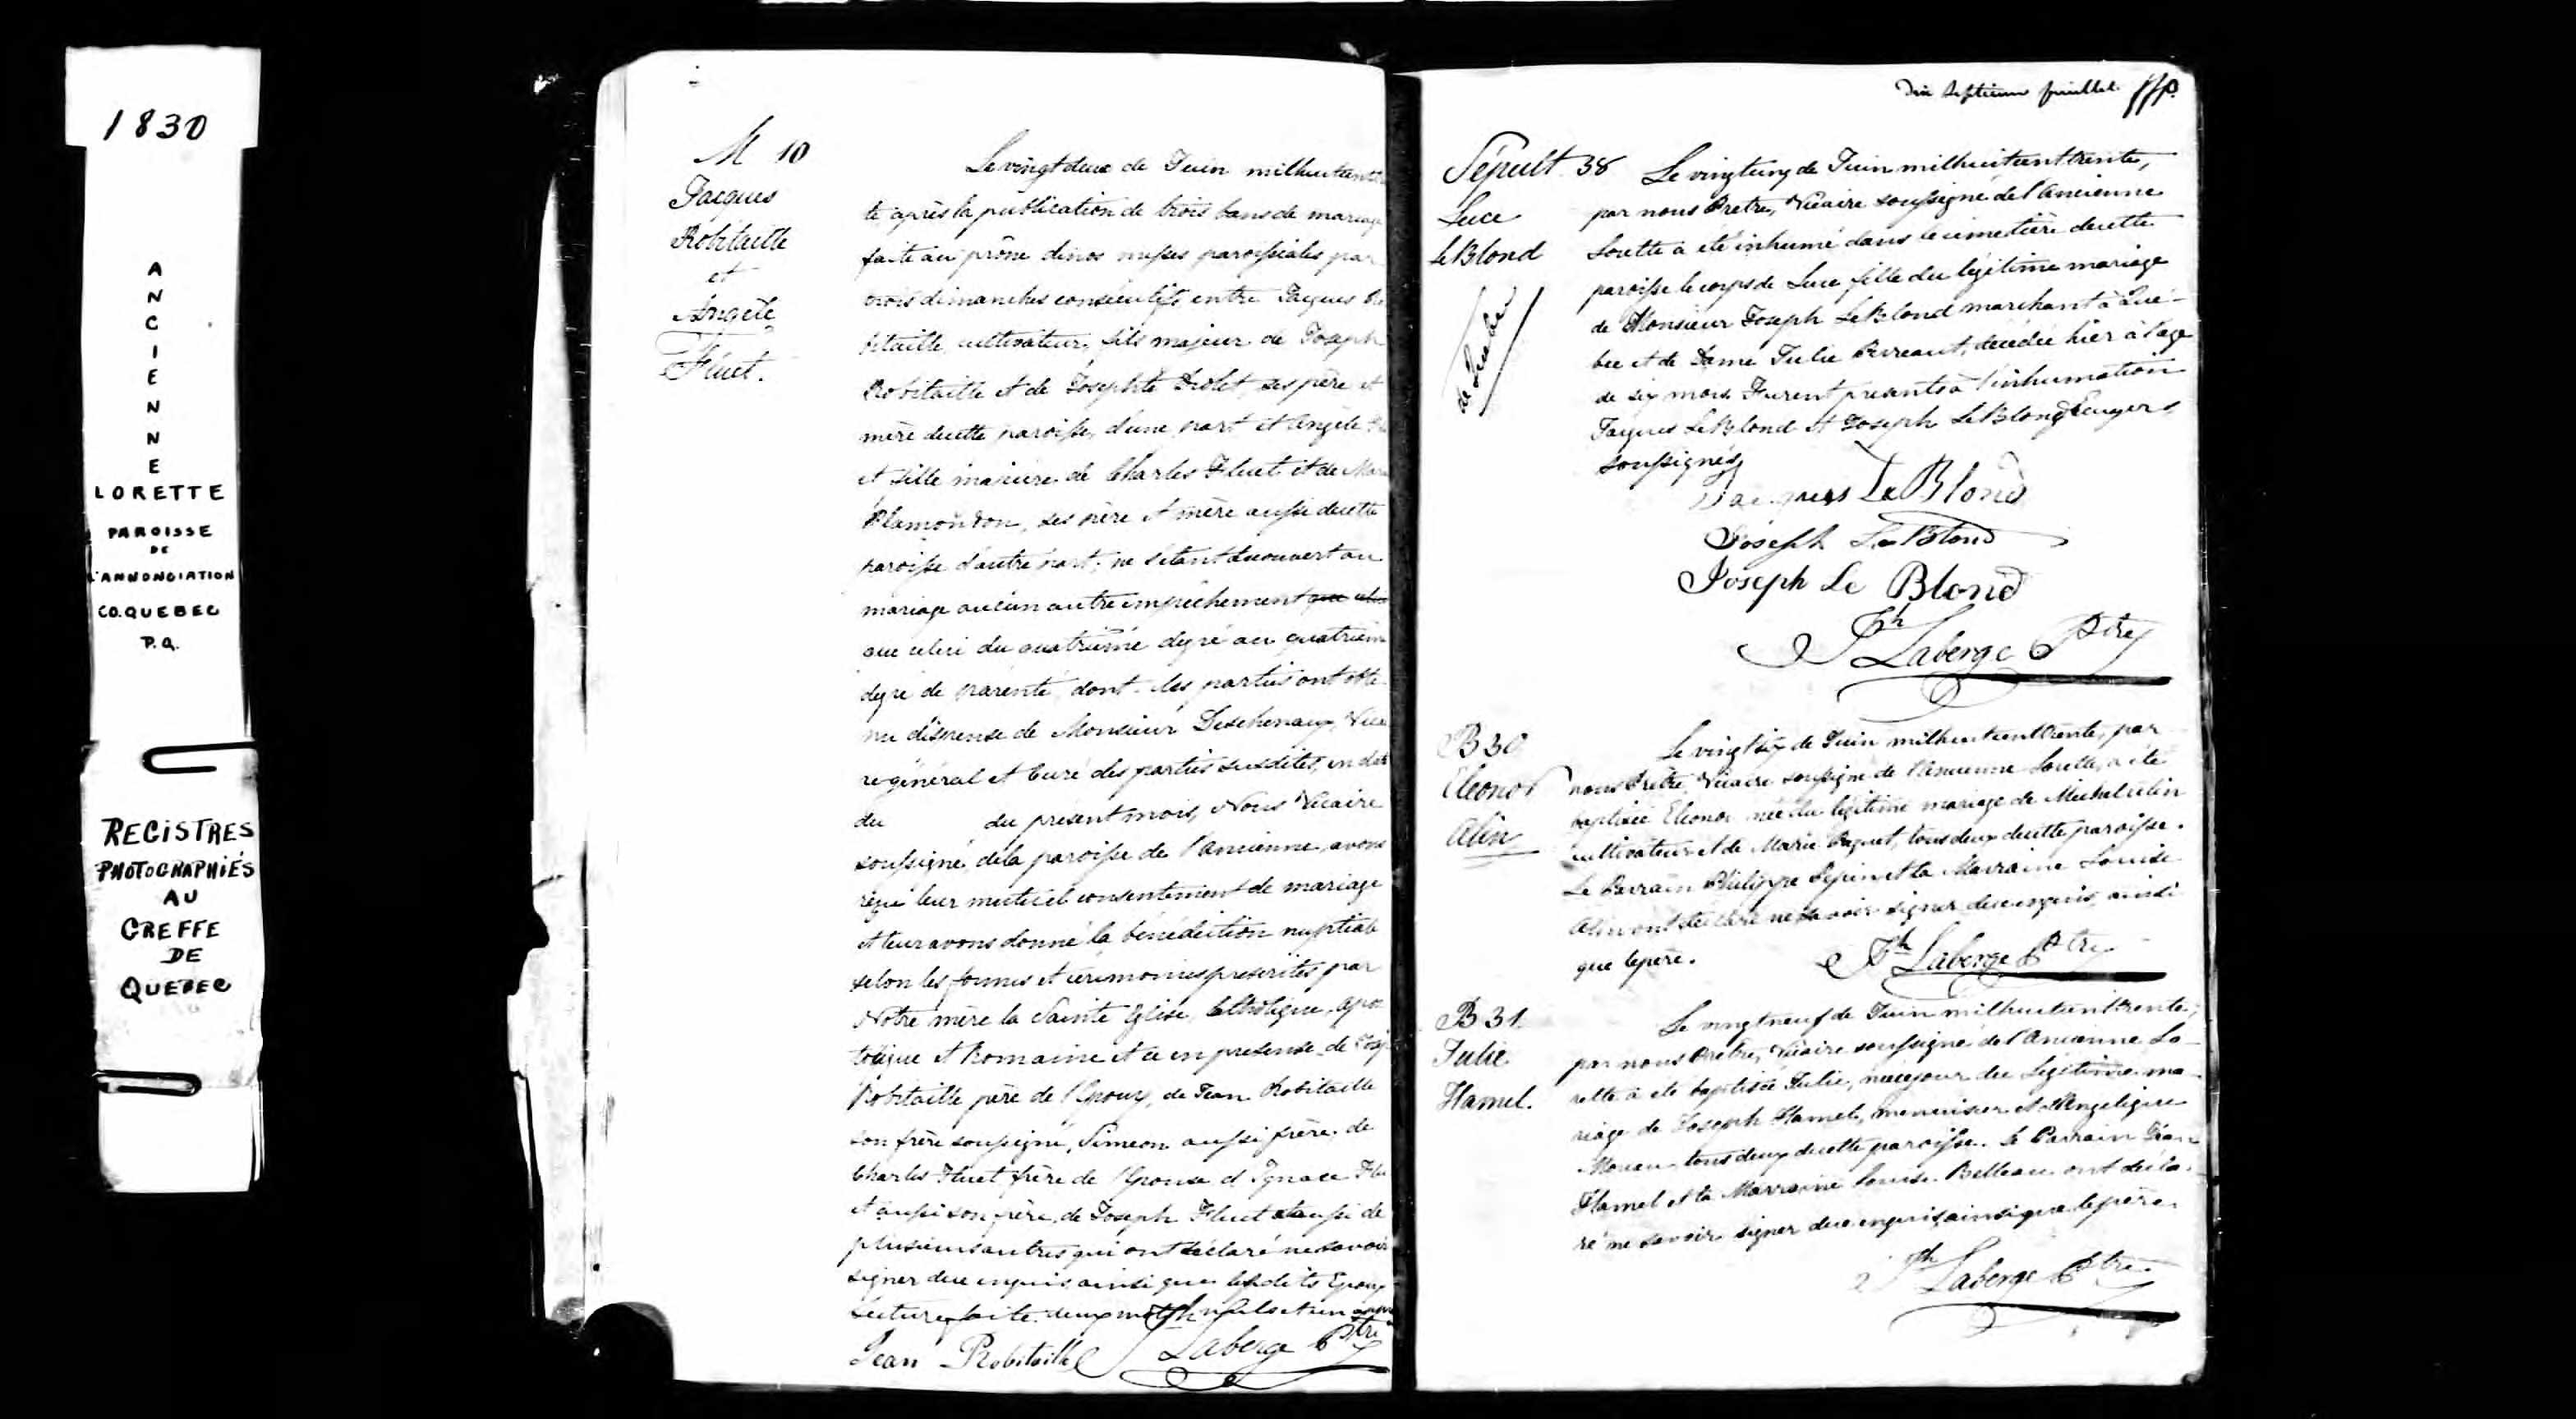 1830
A
N
C
I
E
N
N
E
LORETTE
PAROISSE
DE
L'ANNONCIATION
CO. QUEBEC
P.Q.
REGISTRES
PHOTOGRAPHIÉS
AU
GREFFE
DE
QUEBEC
M 10
Jacques
Robitaille
et
Angele
Fluet.
Le vingtdeux de Juin milhuitcent
te, après la publication de trois bans de mariage
faite au prône de nos messes paroissiales par
trois dimanches consécutifs entre Jacques Ro
bitaille cultivateur, fils majeur de Joseph
Robitaille et de Josephte Drolet, ses père et
mère de cette paroisse, d'une part et Angele Flu
et fille majeure de Charles Fluet et de Marie
Plamondon, ses père et mère aussi de cette
paroisse d'autre part; ne s'étant découvert au
mariage aucun autre empêchement que celui
que celui du quatrième degré au quatrième
degré de parenté, dont les parties ont obte
nu dispense de Monsieur Deschenaux, Vicai
re général et Curé des parties susdites, en date
du du présent mois, Nous Vicaire
soussigné, de la paroisse de l'Ancienne, avons
reçu leur mutuel consentement de mariage
et leur avons donné la bénédiction nuptiale
selon les formes et cérémonies prescrites par
Notre mère la Sainte Eglise Catholique, Apos
tolique et Romaine et ce en presense de Josep
Robitaille père de l'Epoux, de Jean Robitaille
son frère soussigné, Simeon aussi frère, de
Charles Fluet frère de l'Epouse d'Ignace Flu
et aussi son frère, de Joseph Fluet et aussi de
plusieurs autres qui ont déclaré ne savoir
signer de ce enquis ainsi que lesdits Epoux
Lecture faite. deux mots nuls et un
Jean Robitaille Jh Laberge Ptre
Dix septieme feuillet
Sépult. 38
Luce
LeBlond
de Quebec
Le vingtung de Juin milhuitcent trente,
par nous Pretre, Vicaire soussigné de l'Ancienne
Lorette a été inhumé dans le cimetière de cette
paroisse le corps de Luce fille du légitime mariage
de Monsieur Joseph LeBlond marchant à Qué-
bec et de Dame Julie Perreaut, décédée hier à l'age
de six mois. Furent presents à l'inhumation
Jacques LeBlond et Joseph LeBlond Ecuyers
soussignés
Jacques LeBlond
Joseph LeBlond
Joseph Le Blond
Jh Laberge Ptre
B 30
Eleonor
Alin
Le vingtsix de Juin milhuitcent trente, par
nous Prêtre, Vicaire soussigné de l'Ancienne Lorette, a été
baptisée Eleonor née du légitime mariage de Michel Alin
cultivateur et de Marie Paquet, tous deux de cette paroisse.
Le Parrain Philippe Pepin et la Marraine Louise
Alin ont déclaré ne savoir signer de ce enquis, ainsi
que le père.
Jh Laberge Ptre
B 31.
Julie
Hamel.
Le vingtneuf de Juin milhuitcent trente,
par nous Prêtre, Vicaire soussigné de l'Ancienne Lo-
rette a été baptisée Julie, née ce jour du légitime ma-
riage de Joseph Hamel, menuisier et d'Angelique
Moreau tous deux de cette paroisse. Le Parrain Jean
Hamel et la Marraine Louise Belleau ont décla-
ré ne savoir signer de ce enquis ainsi que le père.
Jh Laberge Ptre